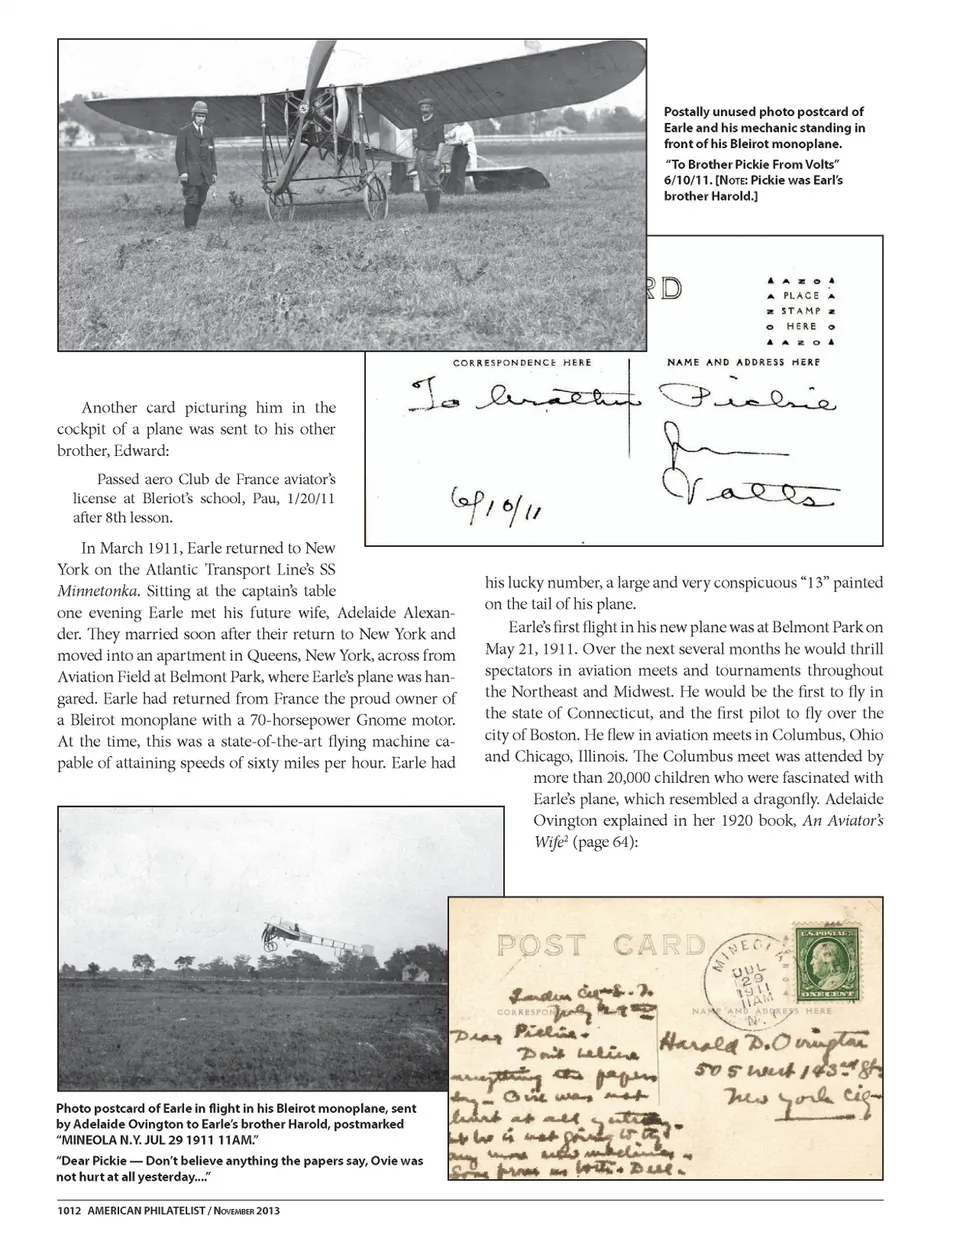 Postally unused photo postcard of
Earle and his mechanic standing in
front of his Bleirot monoplane.
“To Brother Pickie From Volts”
6/10/11. [NOTE: Pickie was Earl’s
brother Harold.]
RD
A Z O
PLACE
STAMP
HERE
A Z O
CORRESPONDENCE HERE
NAME AND ADDRESS HERE
To Brother Pickie
from
Volts
6/10/11
Another card picturing him in the
cockpit of a plane was sent to his other
brother, Edward:
Passed aero Club de France aviator’s
license at Bleriot’s school, Pau, 1/20/11
after 8th lesson.
In March 1911, Earle returned to New
York on the Atlantic Transport Line’s SS
Minnetonka. Sitting at the captain’s table
one evening Earle met his future wife, Adelaide Alexan-
der. They married soon after their return to New York and
moved into an apartment in Queens, New York, across from
Aviation Field at Belmont Park, where Earle’s plane was han-
gared. Earle had returned from France the proud owner of
a Bleirot monoplane with a 70-horsepower Gnome motor.
At the time, this was a state-of-the-art flying machine ca-
pable of attaining speeds of sixty miles per hour. Earle had
his lucky number, a large and very conspicuous “13” painted
on the tail of his plane.
Earle’s first flight in his new plane was at Belmont Park on
May 21, 1911. Over the next several months he would thrill
spectators in aviation meets and tournaments throughout
the Northeast and Midwest. He would be the first to fly in
the state of Connecticut, and the first pilot to fly over the
city of Boston. He flew in aviation meets in Columbus, Ohio
and Chicago, Illinois. The Columbus meet was attended by
more than 20,000 children who were fascinated with
Earle’s plane, which resembled a dragonfly. Adelaide
Ovington explained in her 1920 book, An Aviator’s
Wife² (page 64):
POST CARD
MINEOLA
JUL
29
1911
11AM
N.
U.S. POSTAGE
ONE CENT
NAME AND ADDRESS HERE
July 29
Dear Pickie.
Don't believe
anything the papers
say - Ovie was not
hurt at all yesterday.
Harold D. Ovington
505 West 143rd St.
New York City
Photo postcard of Earle in flight in his Bleirot monoplane, sent
by Adelaide Ovington to Earle’s brother Harold, postmarked
“MINEOLA N.Y. JUL 29 1911 11AM.”
“Dear Pickie — Don’t believe anything the papers say, Ovie was
not hurt at all yesterday....”
1012 AMERICAN PHILATELIST / NOVEMBER 2013